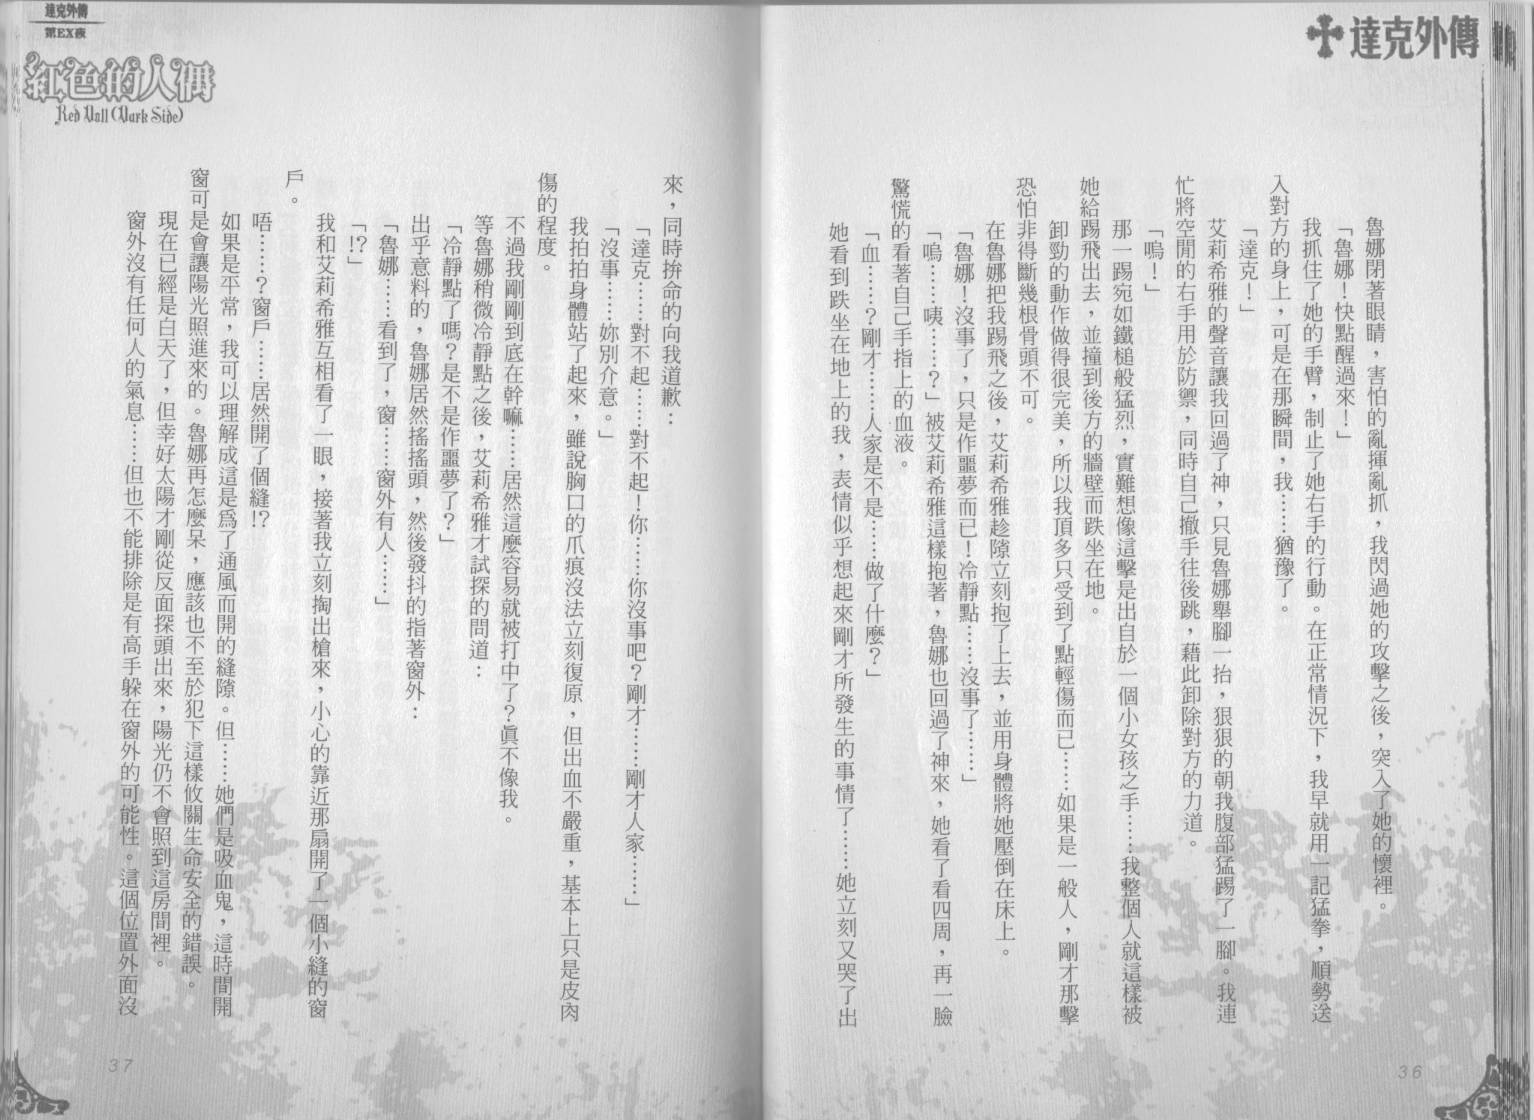 達克外傳
魯娜閉著眼睛，害怕的亂揮亂抓，我閃過她的攻擊之後，突入了她的懷裡。
「魯娜！快點醒過來！」
我抓住了她的手臂，制止了她右手的行動。在正常情況下，我早就用一記猛拳，順勢送
入對方的身上，可是在那瞬間，我……猶豫了。
「達克！」
艾莉希雅的聲音讓我回過了神，只見魯娜舉腳一抬，狠狠的朝我腹部猛踢了一腳。我連
忙將空閒的右手用於防禦，同時自己撤手往後跳，藉此卸除對方的力道。
「嗚！」
那一踢宛如鐵槌般猛烈，實難想像這擊是出自於一個小女孩之手……我整個人就這樣被
她給踢飛出去，並撞到後方的牆壁而跌坐在地。
卸勁的動作做得很完美，所以我頂多只受到了點輕傷而已……如果是一般人，剛才那擊
恐怕非得斷幾根骨頭不可。
在魯娜把我踢飛之後，艾莉希雅趁隙立刻抱了上去，並用身體將她壓倒在床上。
「魯娜！沒事了，只是作噩夢而已！冷靜點……沒事了……」
「嗚……咦……？」被艾莉希雅這樣抱著，魯娜也回過了神來，她看了看四周，再一臉
驚慌的看著自己手指上的血液。
「血……？剛才……人家是不是……做了什麼？」
她看到跌坐在地上的我，表情似乎想起來剛才所發生的事情了……她立刻又哭了出
36
達克外傳
第EX夜
紅色的人偶
Red Doll (Dark Side)
來，同時拚命的向我道歉：
「達克……對不起……對不起！你……你沒事吧？剛才……剛才人家……」
「沒事……妳別介意。」
我拍拍身體站了起來，雖說胸口的爪痕沒法立刻復原，但出血不嚴重，基本上只是皮肉
傷的程度。
不過我剛剛到底在幹嘛……居然這麼容易就被打中了？真不像我。
等魯娜稍微冷靜點之後，艾莉希雅才試探的問道：
「冷靜點了嗎？是不是作噩夢了？」
出乎意料的，魯娜居然搖搖頭，然後發抖的指著窗外：
「魯娜……看到了，窗……窗外有人……」
「!?」
我和艾莉希雅互相看了一眼，接著我立刻掏出槍來，小心的靠近那扇開了一個小縫的窗
戶。
唔……？窗戶……居然開了個縫!?
如果是平常，我可以理解成這是為了通風而開的縫隙。但……她們是吸血鬼，這時間開
窗可是會讓陽光照進來的。魯娜再怎麼呆，應該也不至於犯下這樣攸關生命安全的錯誤。
現在已經是白天了，但幸好太陽才剛從反面探頭出來，陽光仍不會照到這房間裡。
窗外沒有任何人的氣息……但也不能排除是有高手躲在窗外的可能性。這個位置外面沒
37